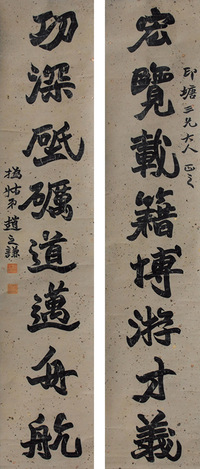 印塘三兄大人正之
宏覽載籍博游才義
功深砥礪道邁舟航
撝叔弟趙之謙